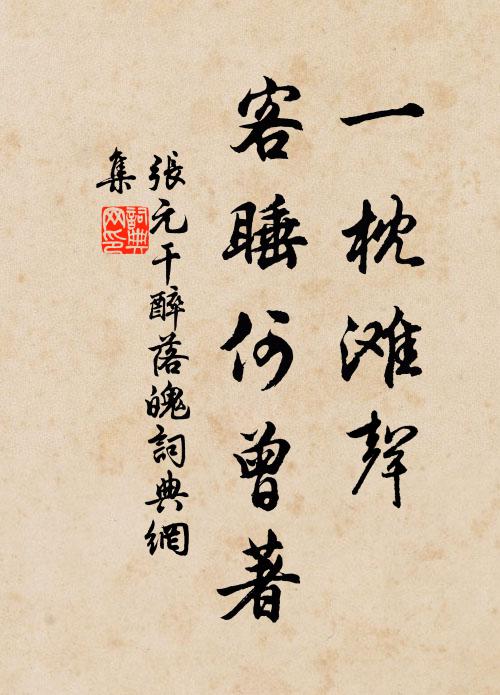 一枕滩聲
客睡何曾著
張元干醉落魄詞典網
集
詞典网印